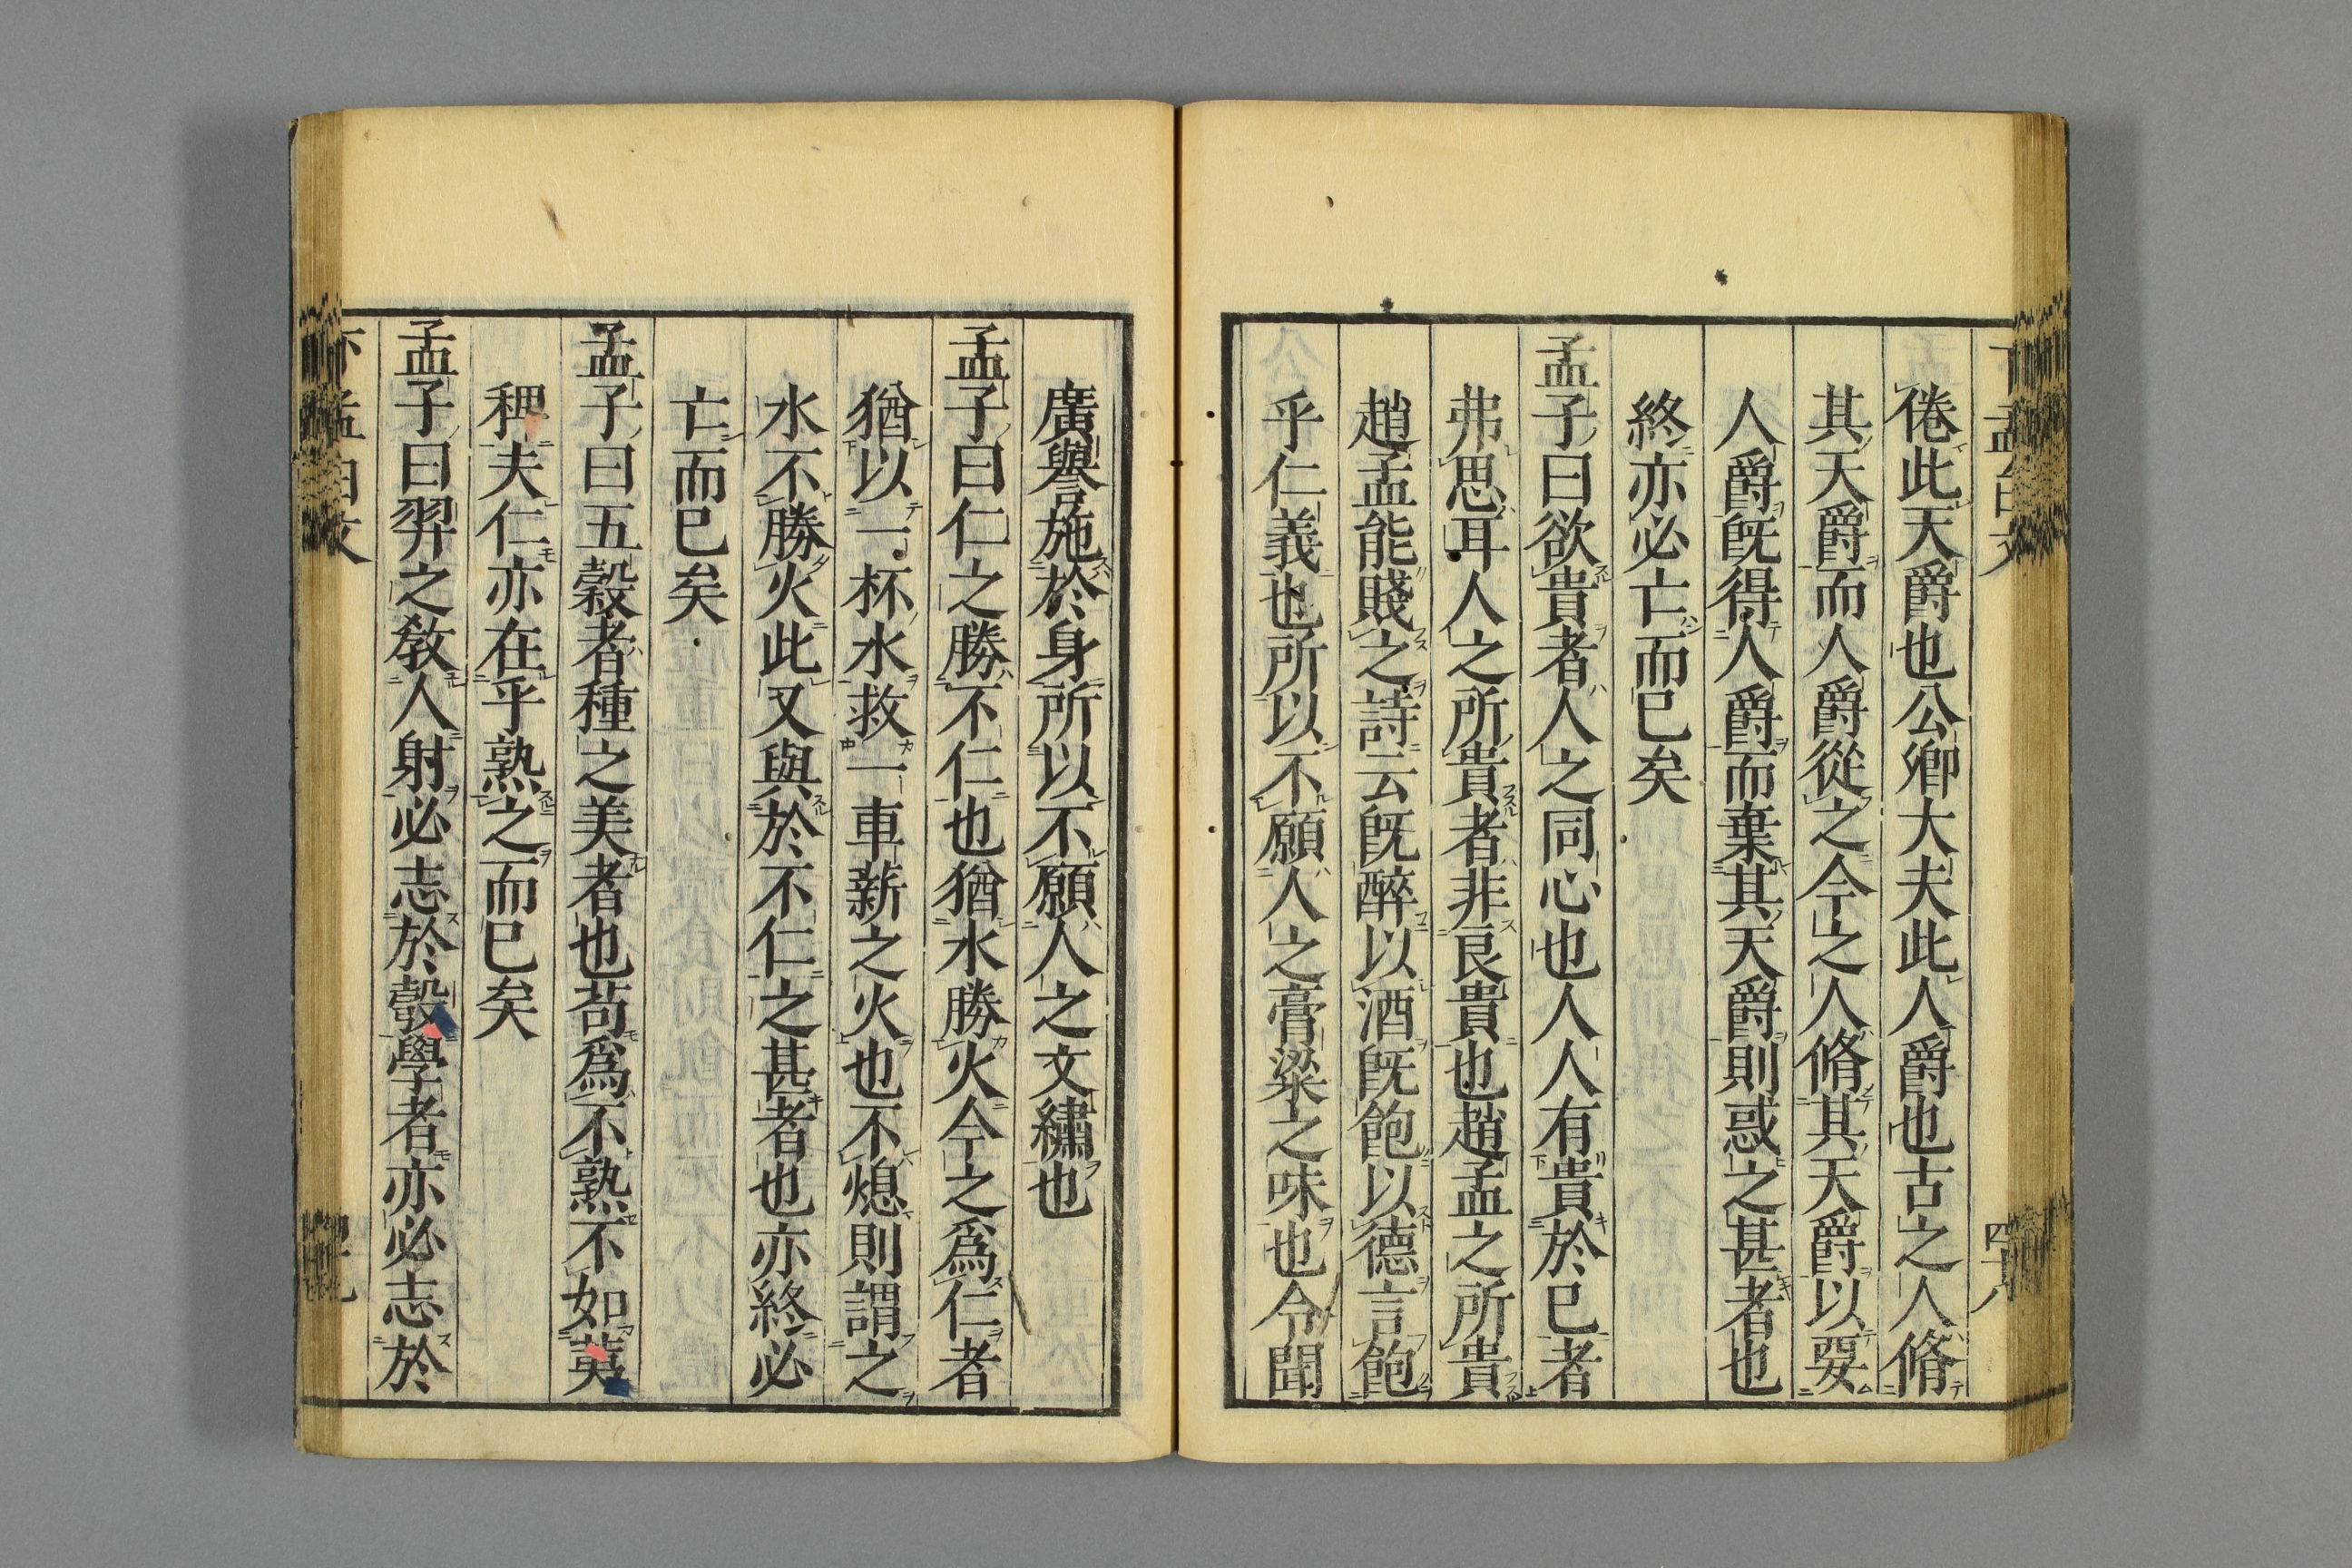 倦此天爵也公卿大夫此人爵也古之人脩
其天爵而人爵從之今之人脩其天爵以要
人爵旣得人爵而棄其天爵則惑之甚者也
終亦必亡而已矣
孟子曰欲貴者人之同心也人人有貴於已者
弗思耳人之所貴者非良貴也趙孟之所貴
趙孟能賤之詩云旣醉以酒旣飽以德言飽
乎仁義也所以不願人之膏粱之味也令聞
廣譽施於身所以不願人之文繡也
孟子曰仁之勝不仁也猶水勝火今之爲仁者
猶以一杯水救一車薪之火也不熄則謂之
水不勝火此又與於不仁之甚者也亦終必
亡而已矣
孟子曰五穀者種之美者也苟爲不熟不如荑
稗夫仁亦在乎熟之而已矣
孟子曰羿之敎人射必志於彀學者亦必志於